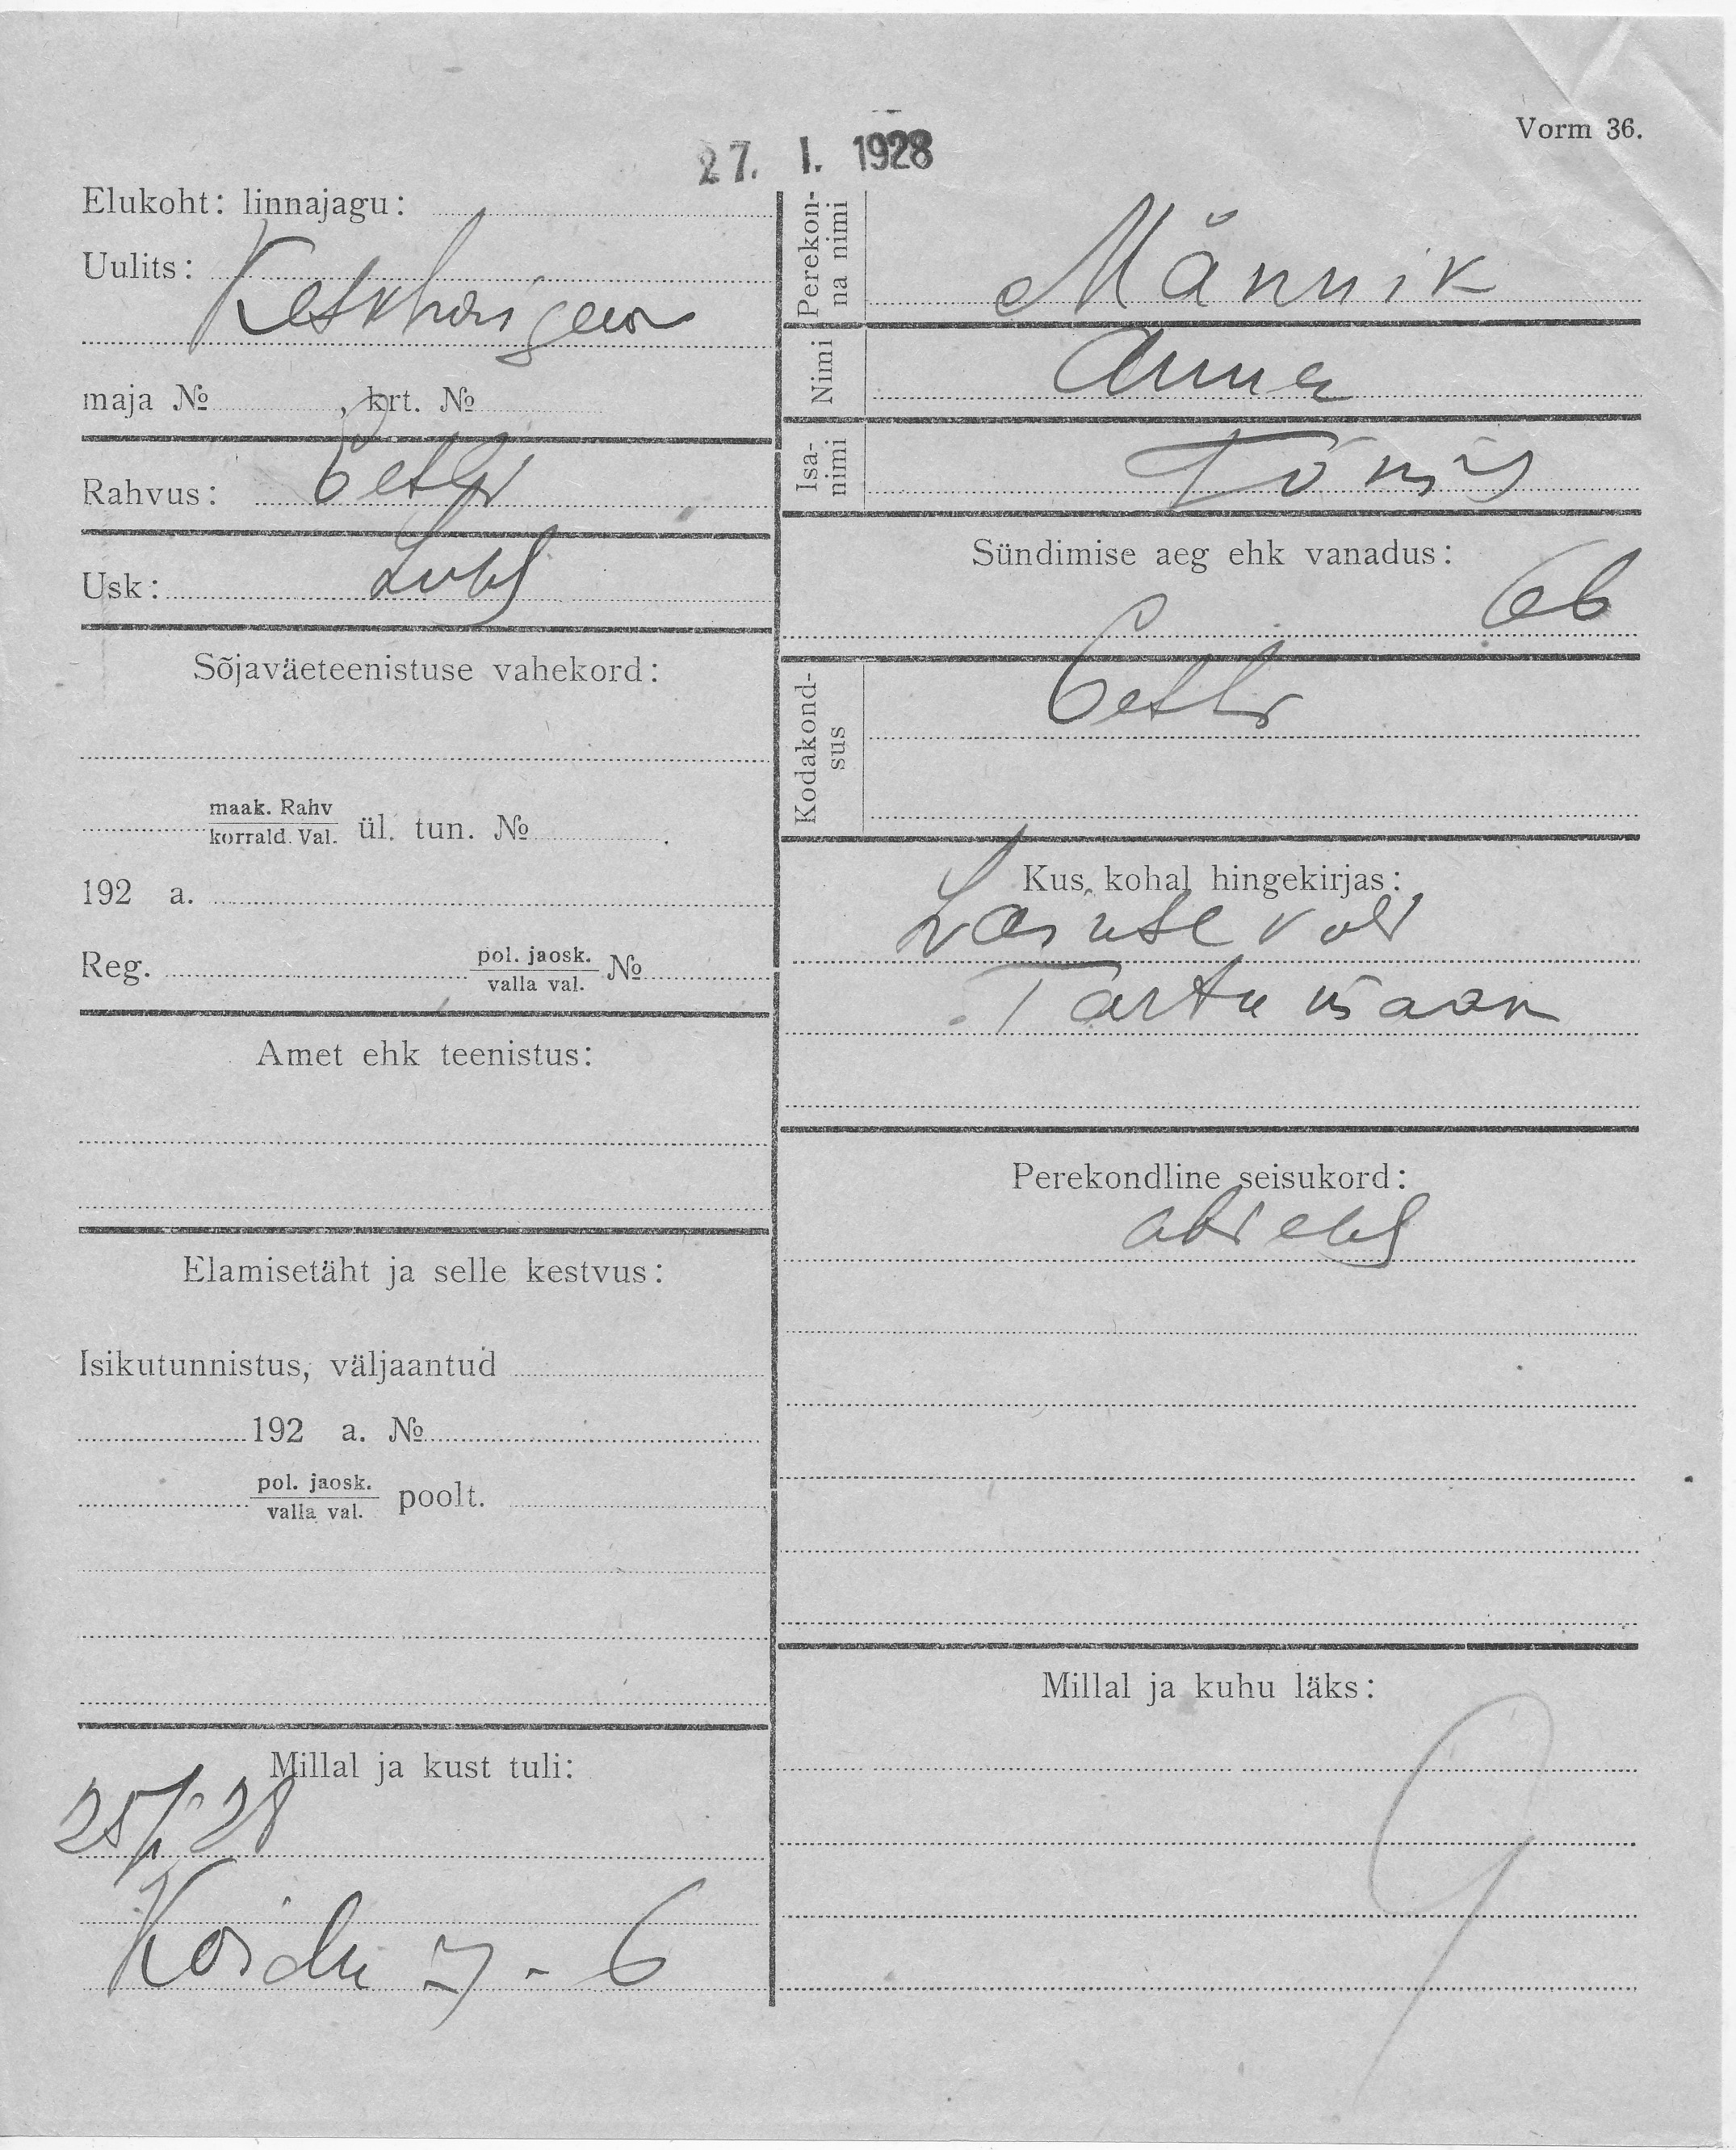 Vorm 36.
27. I. 1928
Elukoht: linnajagu:
Uulits:
Keskhaigem
maja № , krt. №
Rahvus: Eestl
Usk: Luth
Sõjaväeteenistuse vahekord:
maak. Rahv
korrald. Val. ül. tun. № .
192 a.
Reg. pol. jaosk.
valla val. №
Amet ehk teenistus:
Elamisetäht ja selle kestvus:
Isikutunnistus, väljaantud
192 a. №
pol. jaosk.
valla val. poolt.
Millal ja kust tuli:
25/I 28
Koidu 7 - 6
Perekon-
na nimi
Männik
Nimi
Anna
Isa-
nimi
Tõnis
Sündimise aeg ehk vanadus:
66
Kodakond-
sus
Eesti
Kus kohal hingekirjas:
vald
Tartu maak
Perekondline seisukord:
abiel
Millal ja kuhu läks: